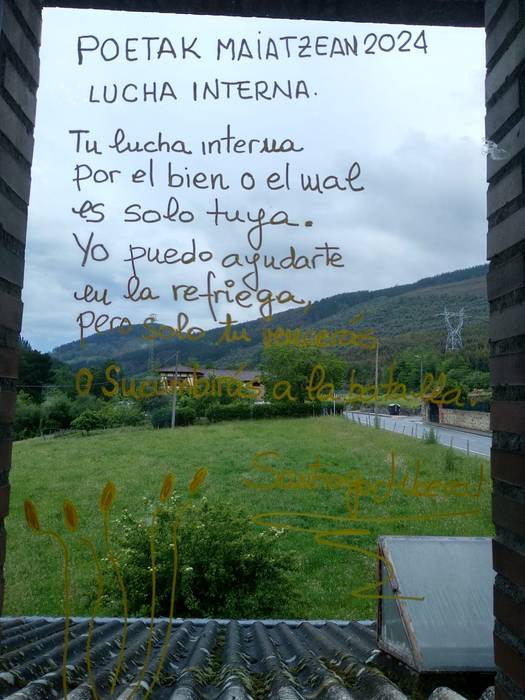 POETAK MAIATZEAN 2024
LUCHA INTERNA.
Tu lucha interna
por el bien o el mal
es solo tuya.
Yo puedo ayudarte
en la refriega,
pero solo tu vencerás
O Sucumbirás a la batalla.
Santiago Liberal